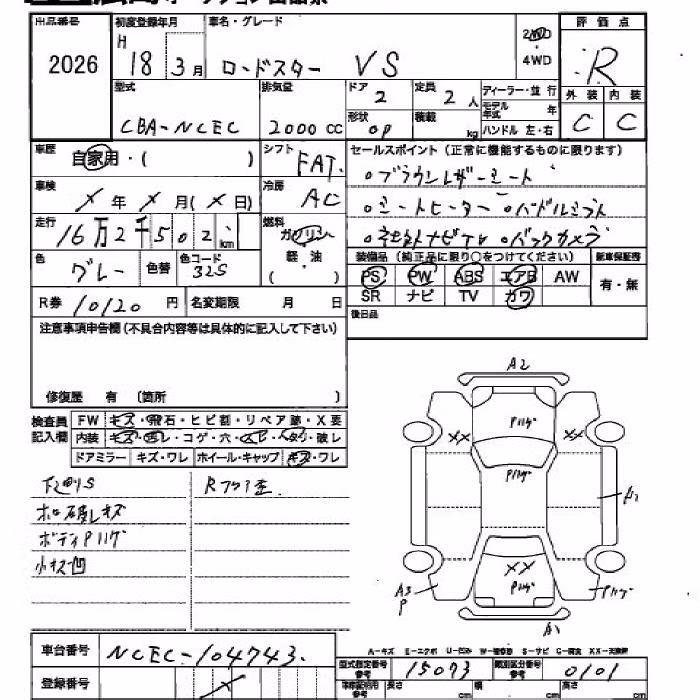 出品番号 2026
初度登録年月 H 18 3月
車名・グレード ロードスター VS
2WD・4WD
評価点 R
外装 内装
C C
型式 CBA-NCEC
排気量 2000 CC
ドア 2
定員 2人
形状 OP
積載 kg
ディーラー・並行
モデル年式 年
ハンドル 左・右
車歴 自家用・( )
シフト FAT.
セールスポイント(正常に機能するものに限ります)
。ブラウンレザーシート
車検 X年X月(X日)
冷房 AC
。シートヒーター 。パドルシフト
走行 16万2千502 km
燃料 ガソリン 軽・油 ( )
。社外ナビTV 。バックカメラ
色 グレー
色替
色コード 32S
装備品(純正品に限り○をつけてください)
新車保証書 有・無
PS PW ABS エアB AW
SR ナビ TV カワ
R券 10120円
名変期限 月 日
後日品
注意事項申告欄(不具合内容等は具体的に記入して下さい)
修復歴 有 〔箇所 〕
検査員記入欄
FW キズ・飛石・ヒビ割・リペア跡・X要
内装 キズ・汚レ・コゲ・穴・スレ・ヘタリ・破レ
ドアミラー キズ・ワレ ホイール・キャップ キズ・ワレ
下廻りS
ホロ破レキズ
ボディPハゲ
小キズ凹
A2
Pハゲ
XX XX
Pハゲ
A1
XX
Pハゲ
A3
P
Pハゲ
A1
A-キズ E-エクボ U-凹み W-補修跡 S-サビ C-腐食 XX-交換済
車台番号 NCEC-104743.
登録番号
型式指定番号 参考 15073
類別区分番号 参考 0101
長さ cm 幅 cm 高さ cm